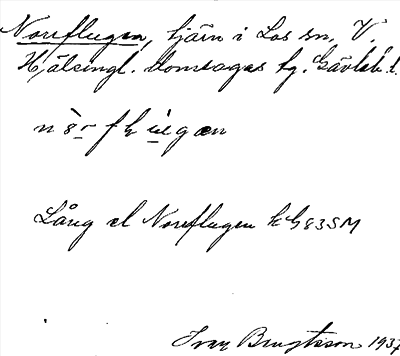 Norrflugen, tjärn i Los sn, V.
Hälsingl. domsagas tg. Gävleb. l.
Lång el Norrflugen k G 83 SM
Bengtsson 1937